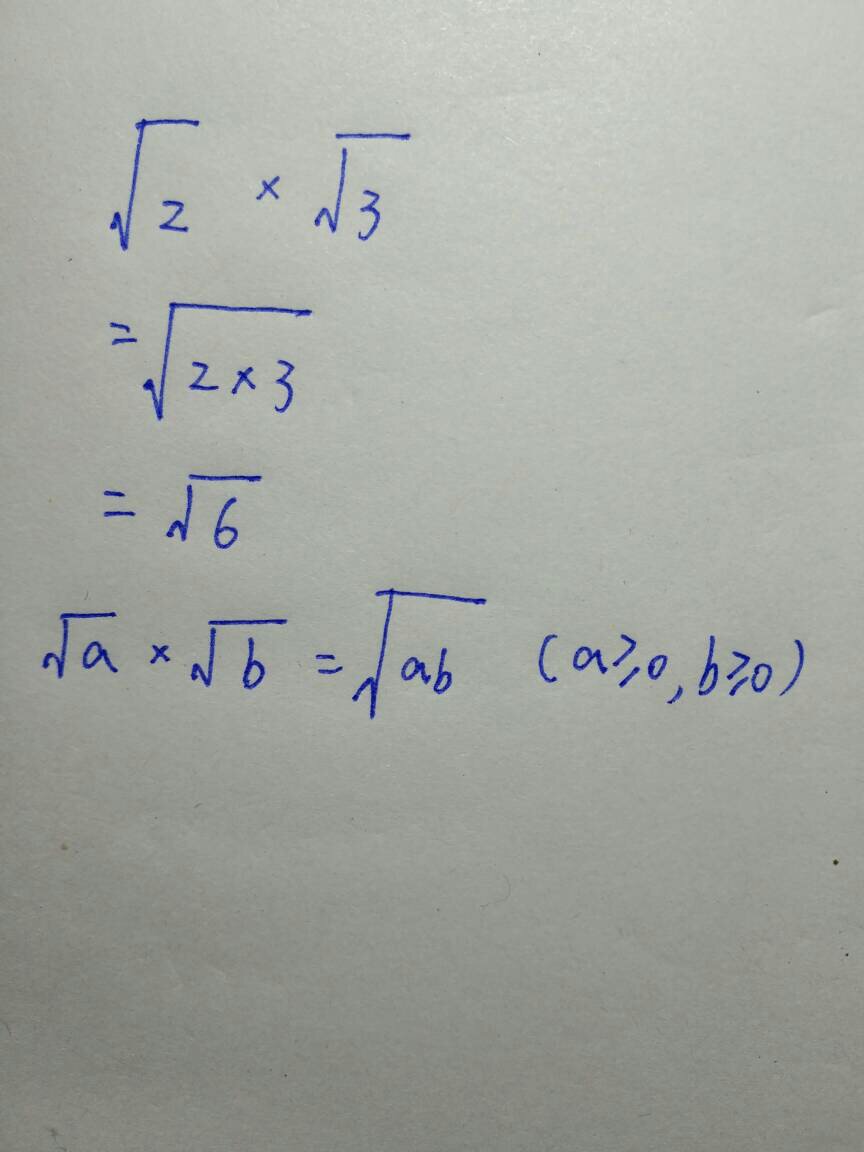 √2 × √3
= √(2×3)
= √6
√a × √b = √(ab) (a≥0, b≥0)